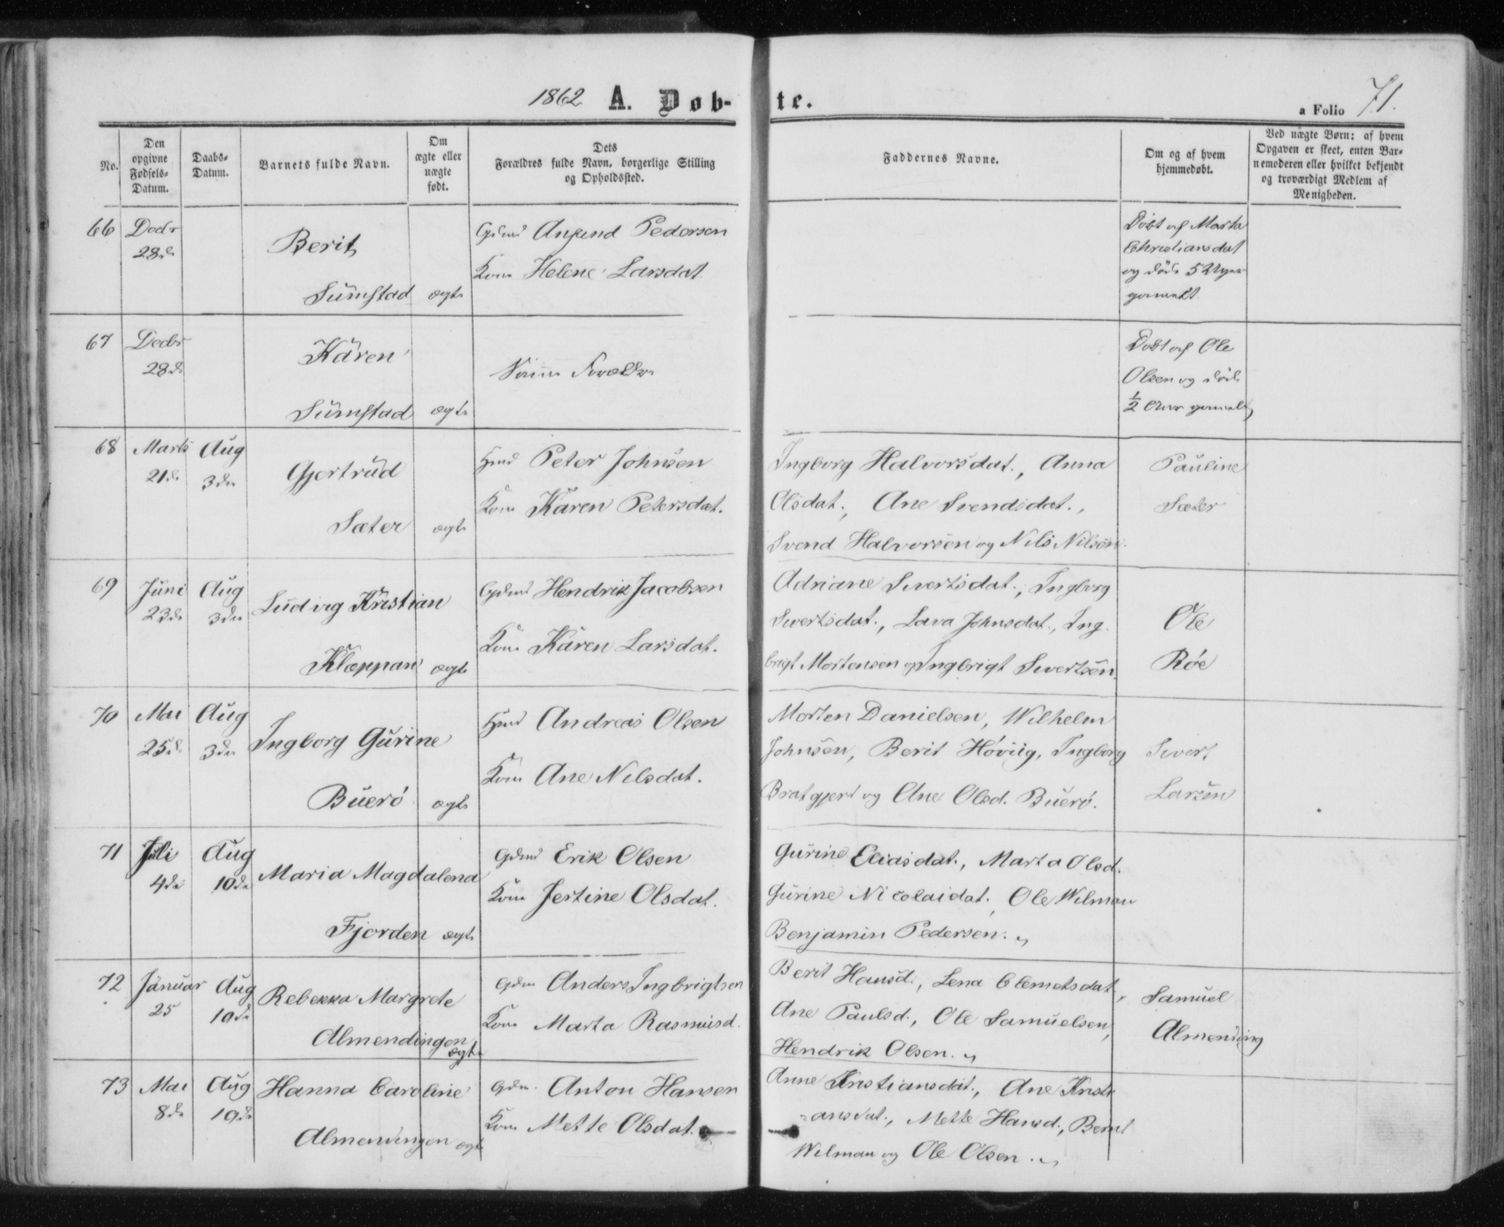 1862 A. Døb- te. a Folio 71.
No.
Den opgivne Fødsels-Datum.
Daabs-Datum.
Barnets fulde Navn.
Om ægte eller uægte født.
Dets Forældres fulde Navn, borgerlige Stilling og Opholdssted.
Faddernes Navne.
Om og af hvem hjemmedøbt.
Ved uægte Børn: af hvem Opgaven er skeet, enten Barnemoderen eller hvilket bekjendt og troværdigt Medlem af Menigheden.
66 Decbr Gdmd Pedersen Døbt af Marta
28de Berit Kone Helene Larsdat. Christiansdat
og døde 5 Uger
Sumstad ægte gammelt
67 Decbr Kåren Døbt af Ole
28de Samme Forældre Olsen og døde
Sumstad ægte ½ Aar gammelt
68 Marts Aug Hmd Peter Johnsen Ingborg Halvorsdat., Anna Pauline
21de 3die Gjertrud Kone Karen Petersdat. Olsdat., Ane Svendsdat., Sæter
Sæter ægte Svend Halvorsen og Nils Nilsen.
69 Juni Aug Ludvig Kristian Gdmd Hendrik Jacobsen Adriane Sivertsdat., Ingborg
23de 3die Sivertsdat., Lava Johnsdat., Ing- Ole
Klæppan ægte Kone Karen Larsdat. brigt Mortensen og Ingbrigt Sivertsen. Røe
70 Mai Aug Hmd Andreas Olsen Morten Danielsen, Wilhelm
25de 3die Ingborg Gurine Johnsen, Berit Høviig, Ingborg Sivert
Buerø ægte Kone Ane Nilsdat. Bratgjerd og Ane Olsd. Buerø. Larsen
71 Juli Aug Gdmd Erik Olsen Gurine Eliasdat., Marta Olsd.
4de 10de Maria Magdalena Kone Jertine Olsdat. Gurine Nicolaidat., Ole Wilman
Fjorden ægte Benjamin Pedersen.
72 Januar Aug Gdm Anders Ingbrigtsen Berit Hansd., Lena Clemetsdat,
25 10de Rebekka Margrete Kone Marta Rasmusd. Ane Paulsd., Ole Samuelsen, Samuel
Almendingen ægte Hendrik Olsen. Almending
73 Mai Aug Hanna Caroline Gdm. Anton Hansen Anne Kristiansdat., Ane Kristi
8de 10de Kone Mette Olsdat. ansdat., Mette Hansd., Bernt
Almendingen ægte Wilman og Ole Olsen.